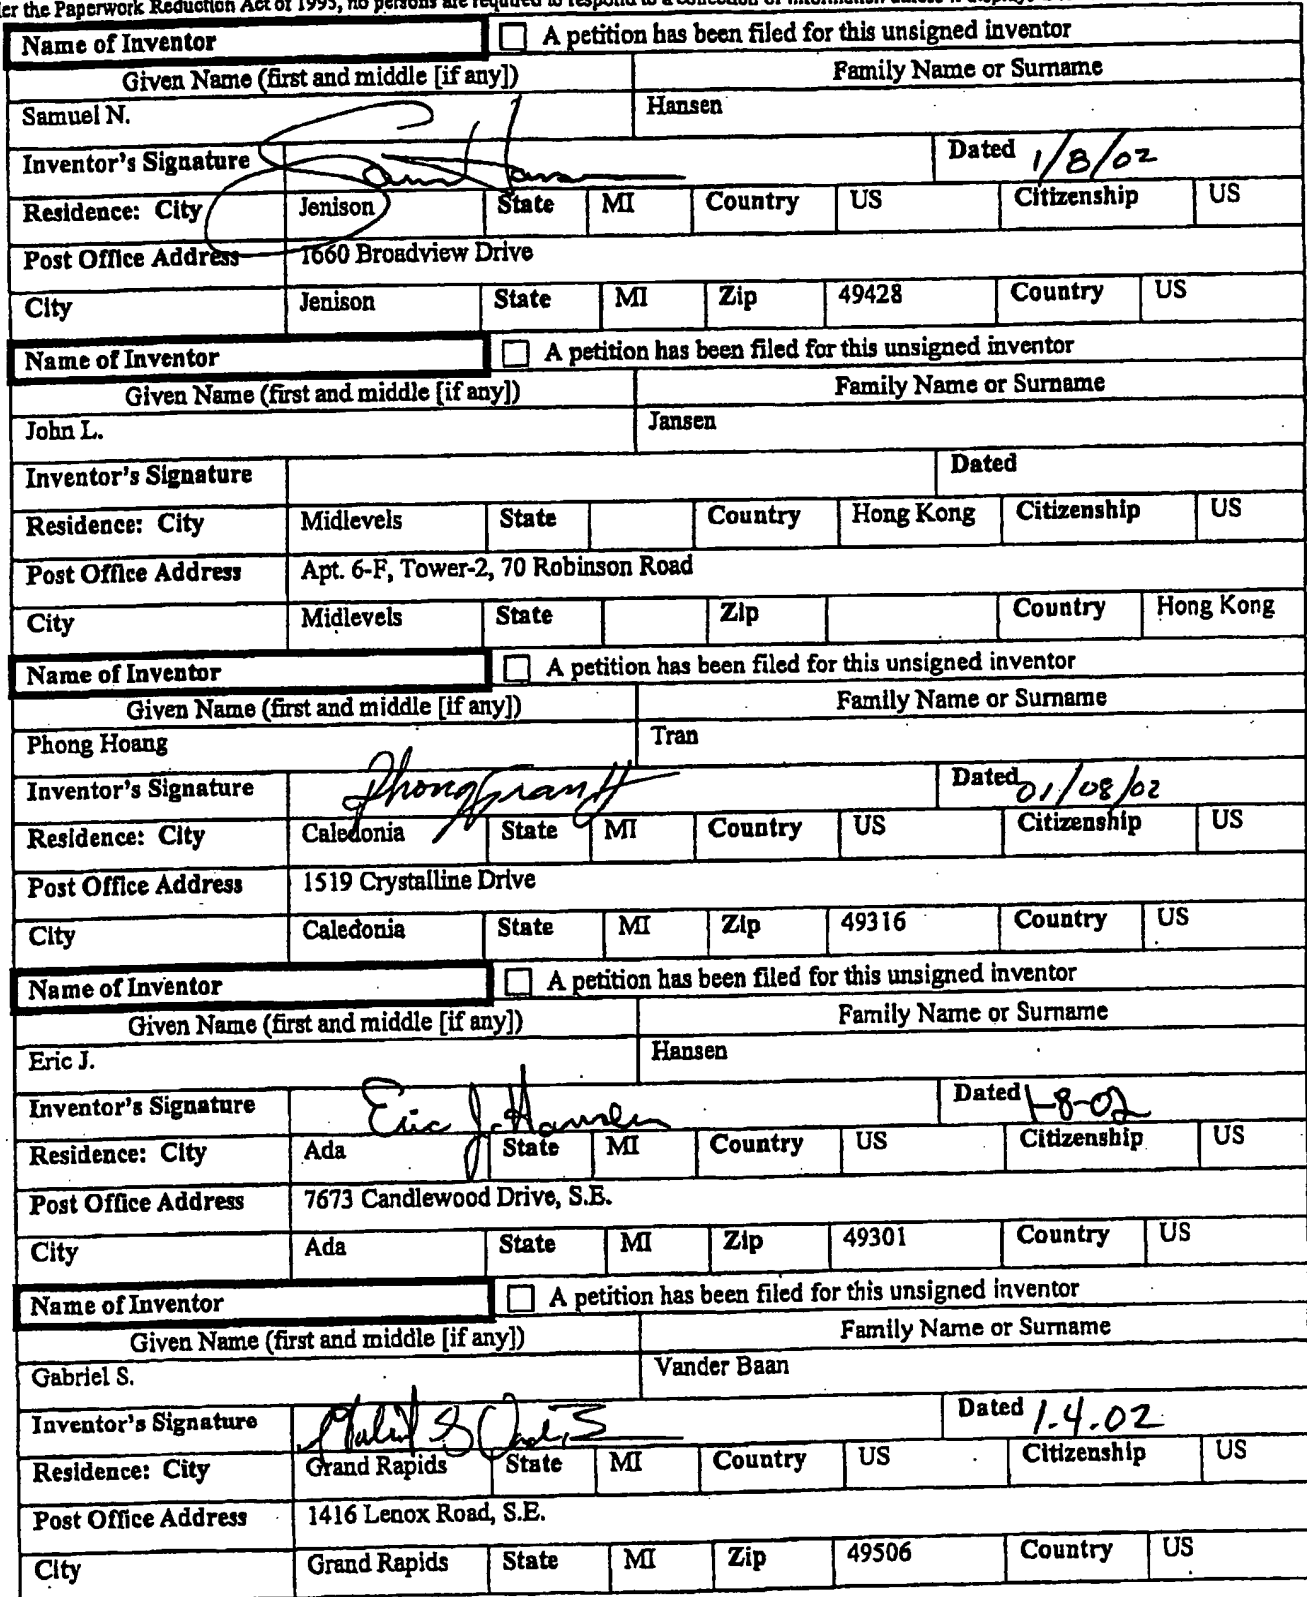 er the Paperwork Reduction Act of 1995, no persons are required to respond to a collection of information unless it displays
Name of Inventor A petition has been filed for this unsigned inventor
Given Name (first and middle [if any]) Family Name or Surname
Samuel N. Hansen
Inventor's Signature Dated 1/8/02
Residence: City Jenison State MI Country US Citizenship US
Post Office Address 1660 Broadview Drive
City Jenison State MI Zip 49428 Country US
Name of Inventor A petition has been filed for this unsigned inventor
Given Name (first and middle [if any]) Family Name or Surname
John L. Jansen
Inventor's Signature Dated
Residence: City Midlevels State Country Hong Kong Citizenship US
Post Office Address Apt. 6-F, Tower-2, 70 Robinson Road
City Midlevels State Zip Country Hong Kong
Name of Inventor A petition has been filed for this unsigned inventor
Given Name (first and middle [if any]) Family Name or Surname
Phong Hoang Tran
Inventor's Signature PhongTranH Dated 01/08/02
Residence: City Caledonia State MI Country US Citizenship US
Post Office Address 1519 Crystalline Drive
City Caledonia State MI Zip 49316 Country US
Name of Inventor A petition has been filed for this unsigned inventor
Given Name (first and middle [if any]) Family Name or Surname
Eric J. Hansen
Inventor's Signature Eric J. Hansen Dated 1-8-02
Residence: City Ada State MI Country US Citizenship US
Post Office Address 7673 Candlewood Drive, S.E.
City Ada State MI Zip 49301 Country US
Name of Inventor A petition has been filed for this unsigned inventor
Given Name (first and middle [if any]) Family Name or Surname
Gabriel S. Vander Baan
Inventor's Signature Dated 1.4.02
Residence: City Grand Rapids State MI Country US Citizenship US
Post Office Address 1416 Lenox Road, S.E.
City Grand Rapids State MI Zip 49506 Country US